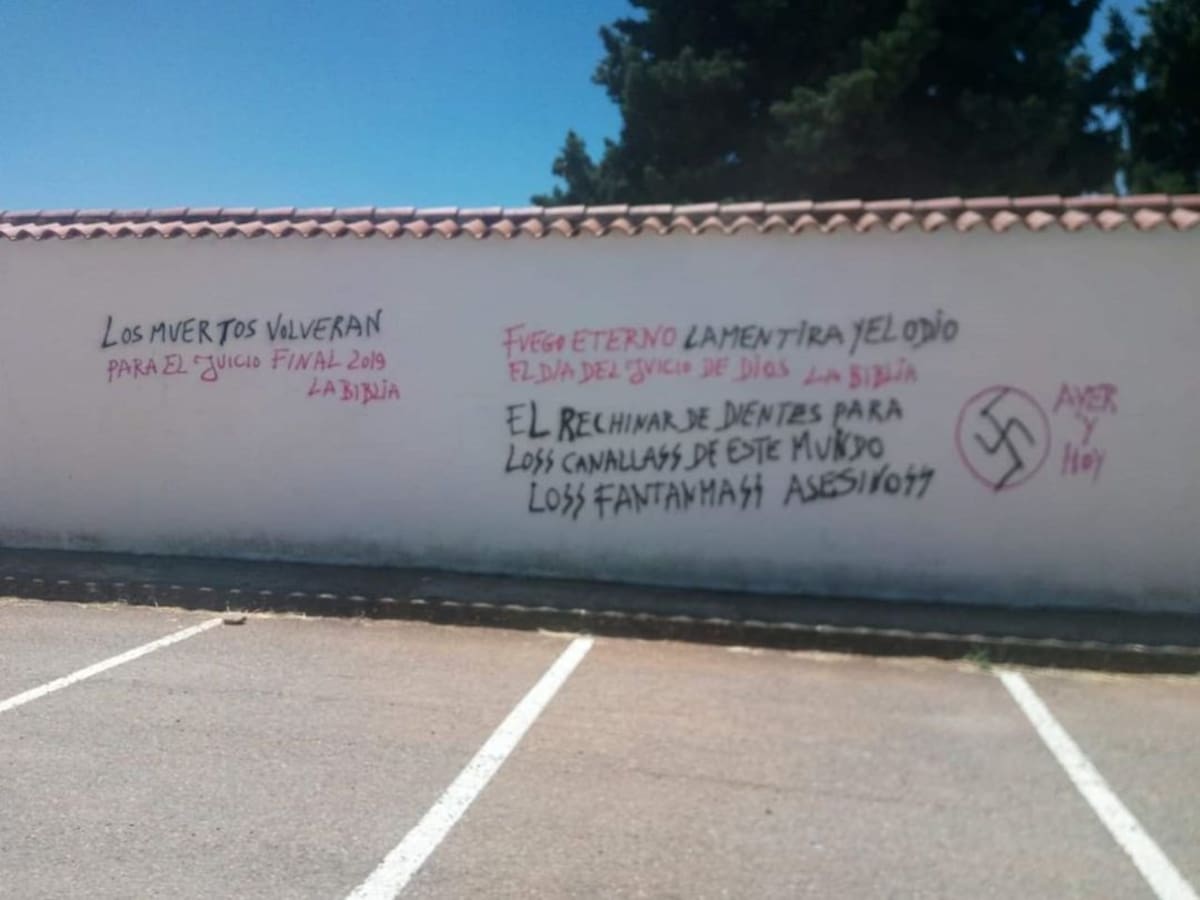 LOS MUERTOS VOLVERAN
PARA EL JUICIO FINAL 2019
LA BIBLIA
FUEGO ETERNO LA MENTIRA Y EL ODIO
EL DIA DEL JUICIO DE DIOS LA BIBLIA
EL RECHINAR DE DIENTES PARA
LOSS CANALLASS DE ESTE MUNDO
LOSS FANTANMASS ASESINOSS
AYER
Y
HOY